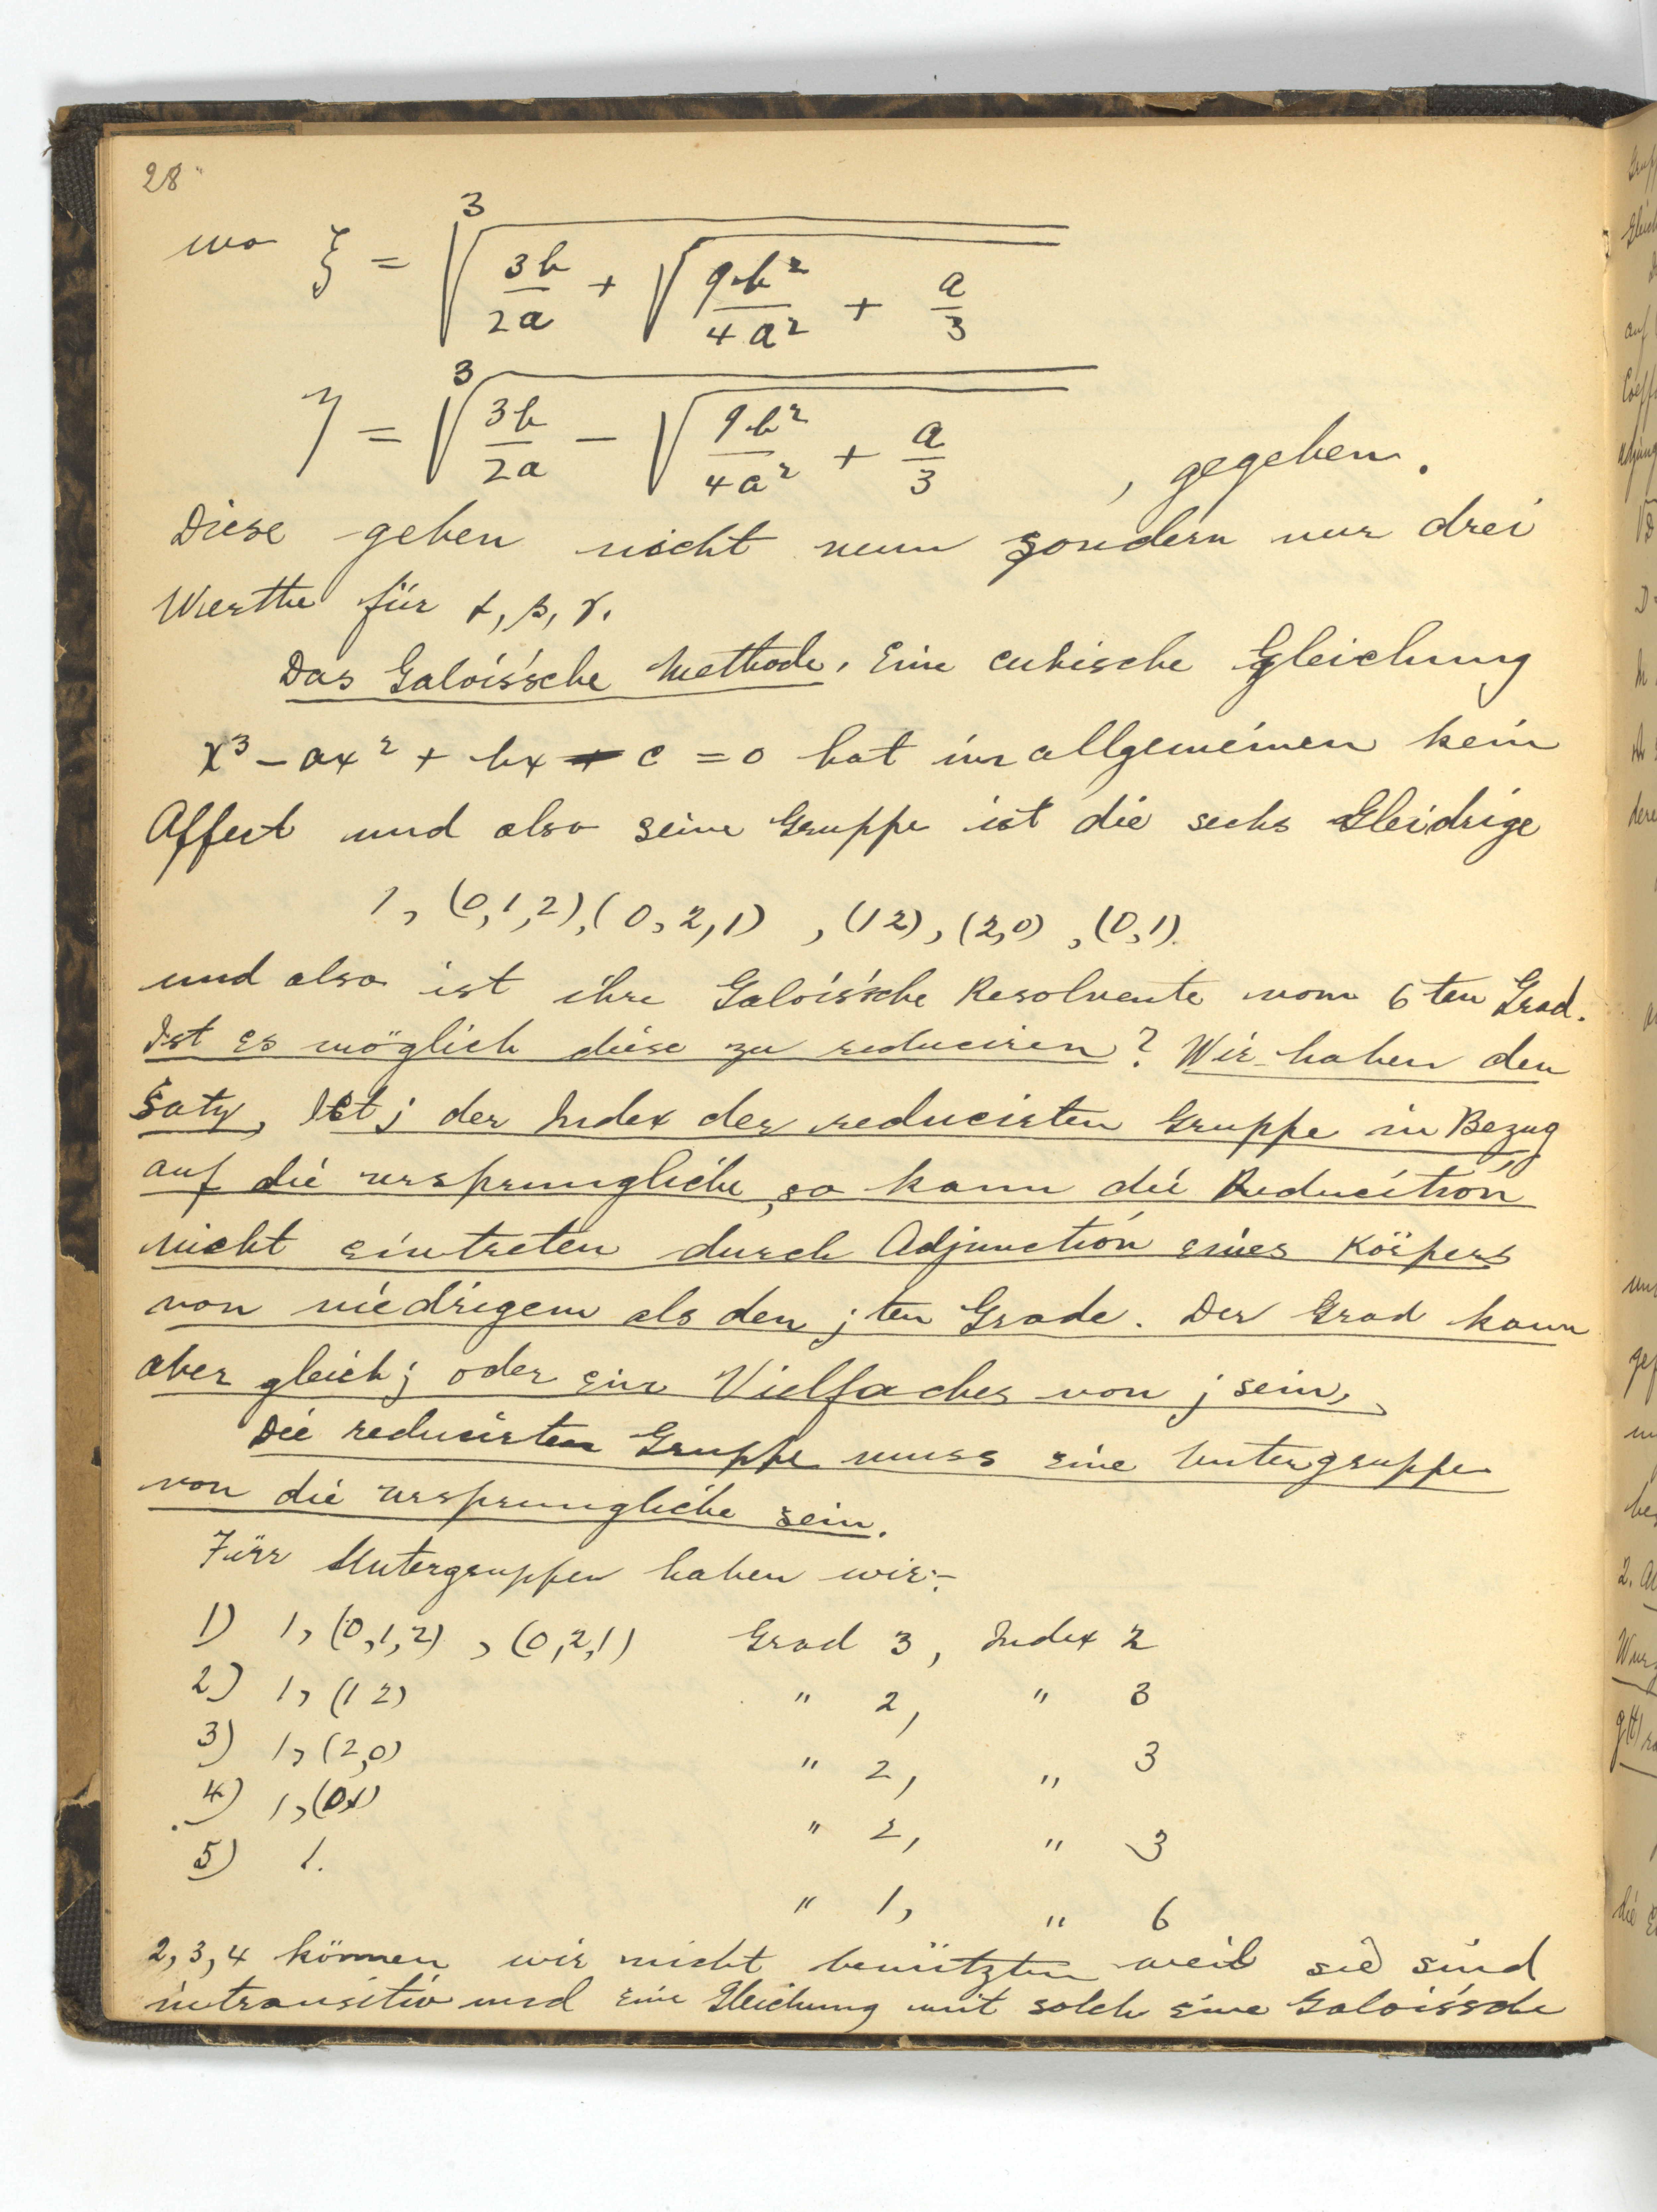 28
wo ξ = ∛(3b/2a + √(9b²/4a² + a/3))
η = ∛(3b/2a − √(9b²/4a² + a/3)) , gegeben.
Diese geben nicht neun sondern nur drei
Werthe für α, β, γ.
Das Galois'sche Methode. Eine cubische Gleichung
x³ − ax² + bx − c = 0 hat im allgemeinen kein
Affect und also seine Gruppe ist die sechs Gleidrige
1, (0,1,2), (0,2,1) , (12), (2,0) , (0,1).
und also ist ihre Galois'sche Resolvente vom 6ten Grad.
Ist es möglich diese zu reduciren? Wir haben den
Satz, Ist j der Index der reducirten Gruppe in Bezug
auf die ursprungliche, so kann die Reducition
nicht eintreten durch Adjunction eines Körpers
von niedrigem als den j ten Grade. Der Grad kann
aber gleich j oder ein Vielfaches von j sein,
Die reducirten Gruppe muss eine Untergruppe
von die ursprungliche sein.
Fürr Untergruppen haben wir:-
1) 1, (0,1,2) , (0,2,1) Grad 3, Index 2
2) 1, (1 2) " 2, " 3
3) 1, (2,0) " 2, " 3
4) 1, (01) " 2, " 3
5) 1. " 1, " 6
2, 3, 4 können wir nicht benützten weil sie sind
intransitiv und eine Gleichung mit solch eine Galois'sche